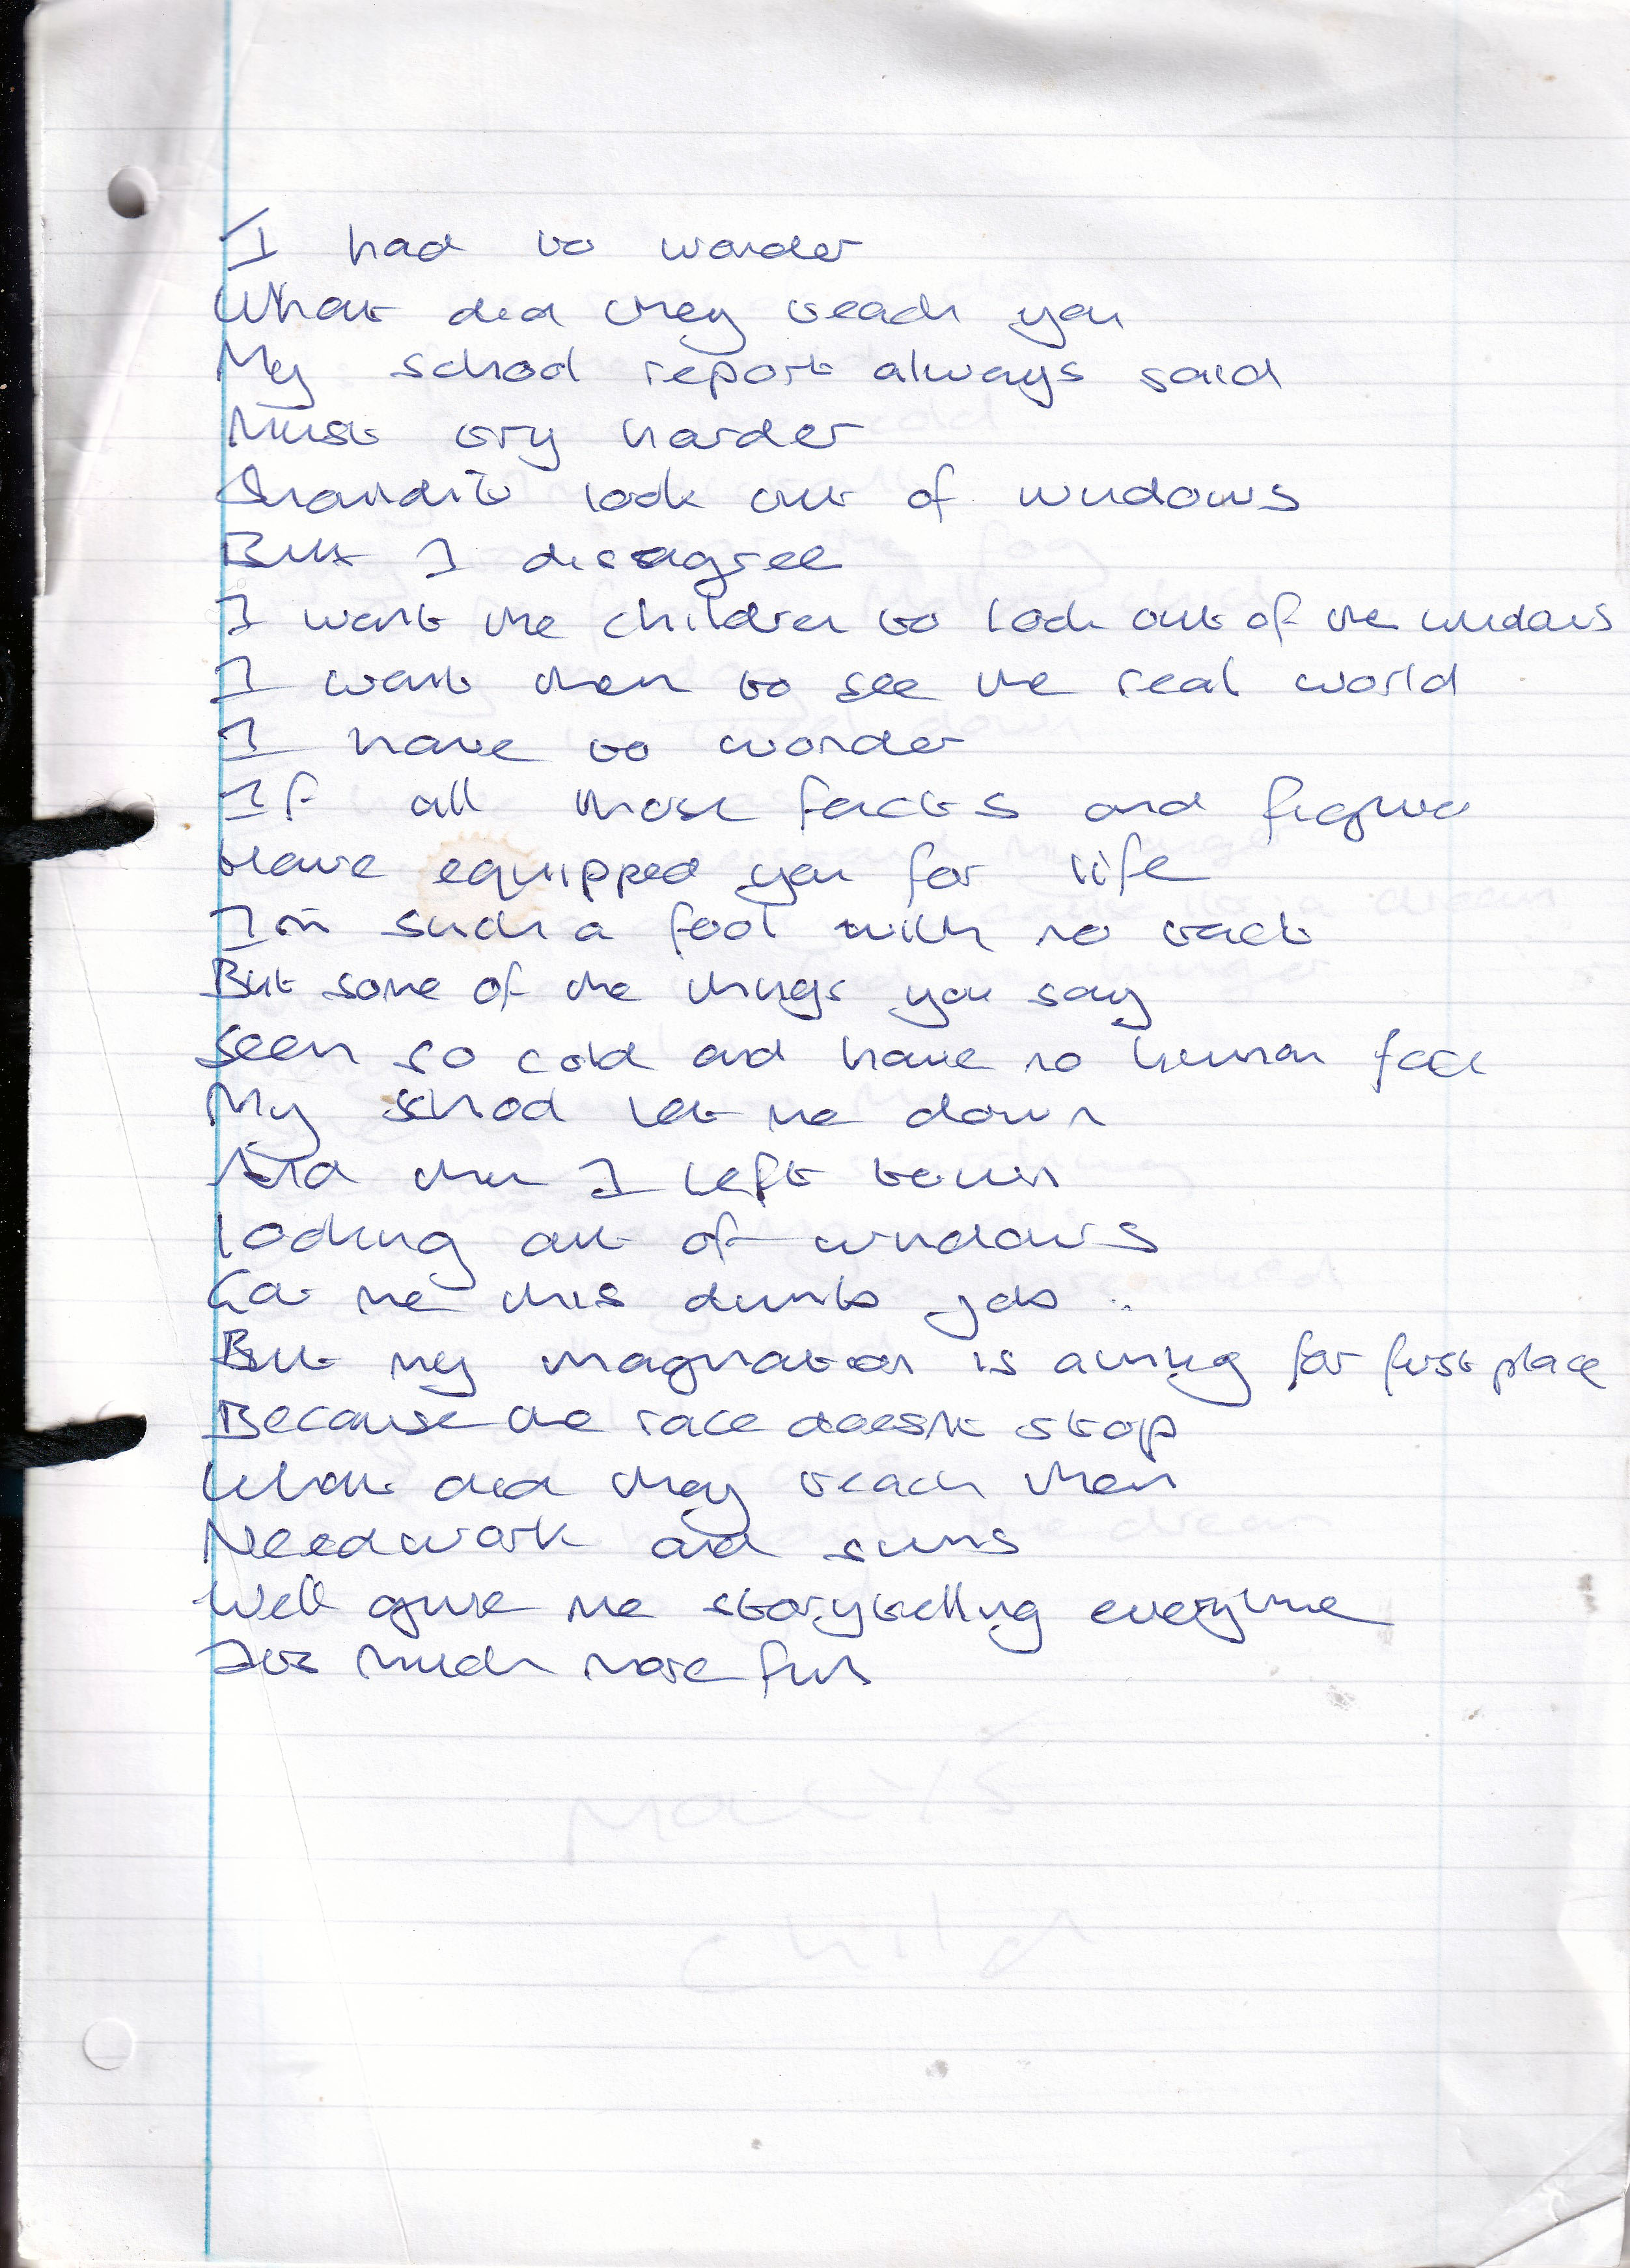 I had to wonder
What did they teach you
My school report always said
Must try harder
Shouldn't look out of windows
But I disagree
I want the children to look out of the windows
I want them to see the real world
I have to wonder
If all those facts and figures
Have equipped you for life
I'm such a fool with no tact
But some of the things you say
Seem so cold and have no human face
My school let me down
And then I left town
Looking out of windows
Got me this dumb job
But my imagination is aiming for first place
Because the race doesn't stop
What did they teach them
Needwork and sums
Well give me storytelling everytime
Its much more fun